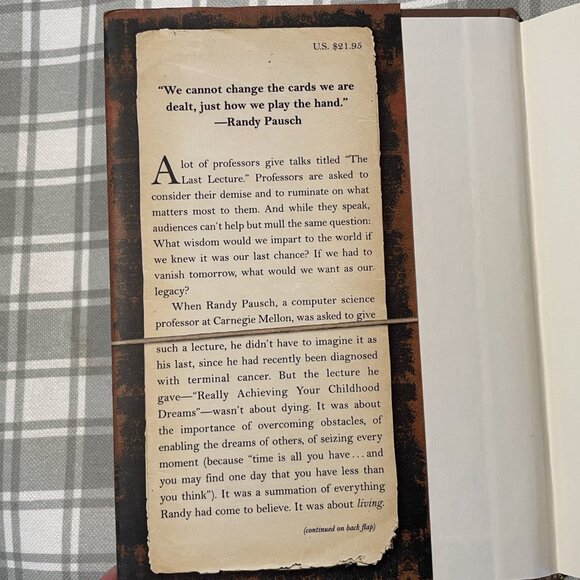 U.S. $21.95
“We cannot change the cards we are
dealt, just how we play the hand.”
—Randy Pausch
A lot of professors give talks titled “The
Last Lecture.” Professors are asked to
consider their demise and to ruminate on what
matters most to them. And while they speak,
audiences can’t help but mull the same question:
What wisdom would we impart to the world if
we knew it was our last chance? If we had to
vanish tomorrow, what would we want as our
legacy?
When Randy Pausch, a computer science
professor at Carnegie Mellon, was asked to give
such a lecture, he didn’t have to imagine it as
his last, since he had recently been diagnosed
with terminal cancer. But the lecture he
gave—“Really Achieving Your Childhood
Dreams”—wasn’t about dying. It was about
the importance of overcoming obstacles, of
enabling the dreams of others, of seizing every
moment (because “time is all you have . . . and
you may find one day that you have less than
you think”). It was a summation of everything
Randy had come to believe. It was about living.
(continued on back flap)